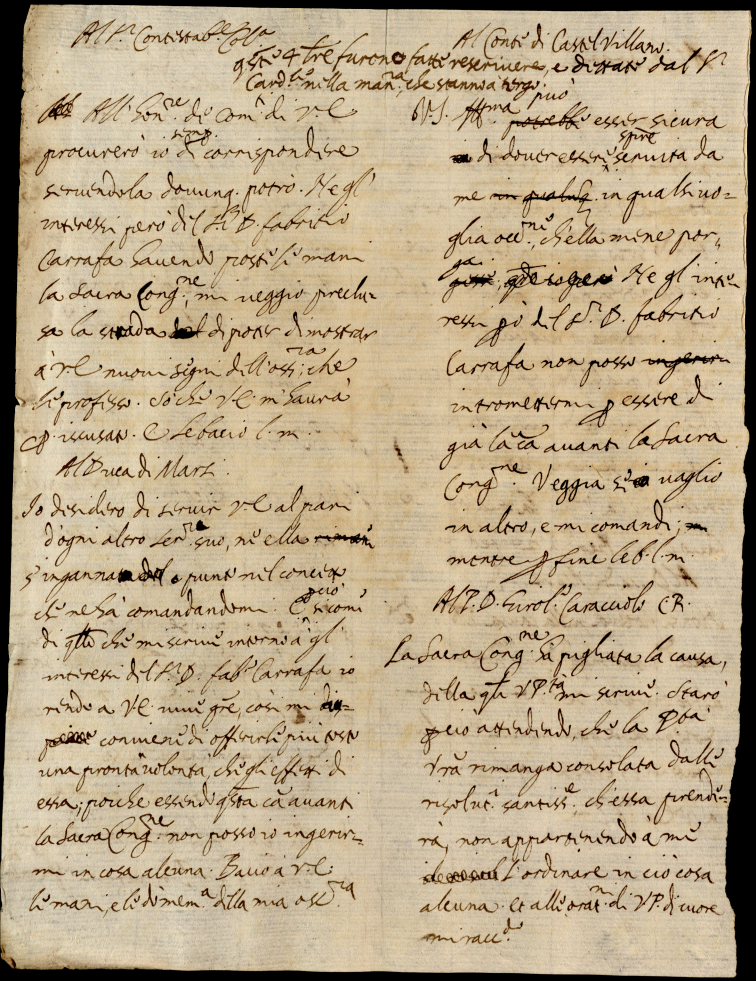 Al Sr. Contestabe. Colla.
qste 4 lre furono fatte rescrivere, e dettate dal Sr.
Cardle. nella manra. che stanno a tergo.
All' honre. de Comi. di V.E.
procurerò io semp. di corrispondere
servendola dovunq. potrò. Ne gl'
interessi però del Sr. D. Fabritio
Carrafa havendo poste le mani
la Sacra Congne. mi veggio preclu-
sa la strada di poter dimostrar
à V.E. nuovi segni dell'ossza. che
le professo. So che V.E. m'haurà
p. iscusato. E le bacio l. m.
Al Duca di Marsi.
Io desidero di servir V.E. al pari
d'ogni altro Serre. suo, nè ella
s'inganna punto nel concetto
che ne hà comandandomi. E pciò sicome
di qllo che mi scrive intorno à gl'
interessi del Sr. D. Fabo. Carrafa io
rendo a V.E. vive gre, così mi
conviene di offerirle più tosto
una pronta volontà, che gli effetti di
essa; poiche essendo qsta cã avanti
la Sacra Congne. non posso io ingerir-
mi in cosa alcuna. Bacio à V.E.
le mani, e le dò mema. della mia ossza.
Al Conte di Castel Villano.
V.S. Illma. può potrebbe esser sicura
di dover essere sempre servita da
me in qualsivo-
glia occne., ch'ella me ne por-
ga Ne gl'inte-
ressi pò del Sr. D. Fabritio
Carrafa non posso ingerirm
intromettermi p essere di
già la cã avanti la Sacra
Congne. Veggia se vaglio
in altro, e mi comandi;
mentre p fine le b. l. m.
Al P. D. Gurole. Caracciolo C.R.
La Sacra Congne. hà pigliata la causa,
della qle V.P.tà mi scrive. Starò
pciò attendendo, che la Pbà
Vra rimanga consolata dalle
risoluti. santisse. ch'essa prende-
rà, non appartenendo à me
l'ordinare in ciò cosa
alcuna. Et alle oratni. di V.P. di cuore
mi raccdo.